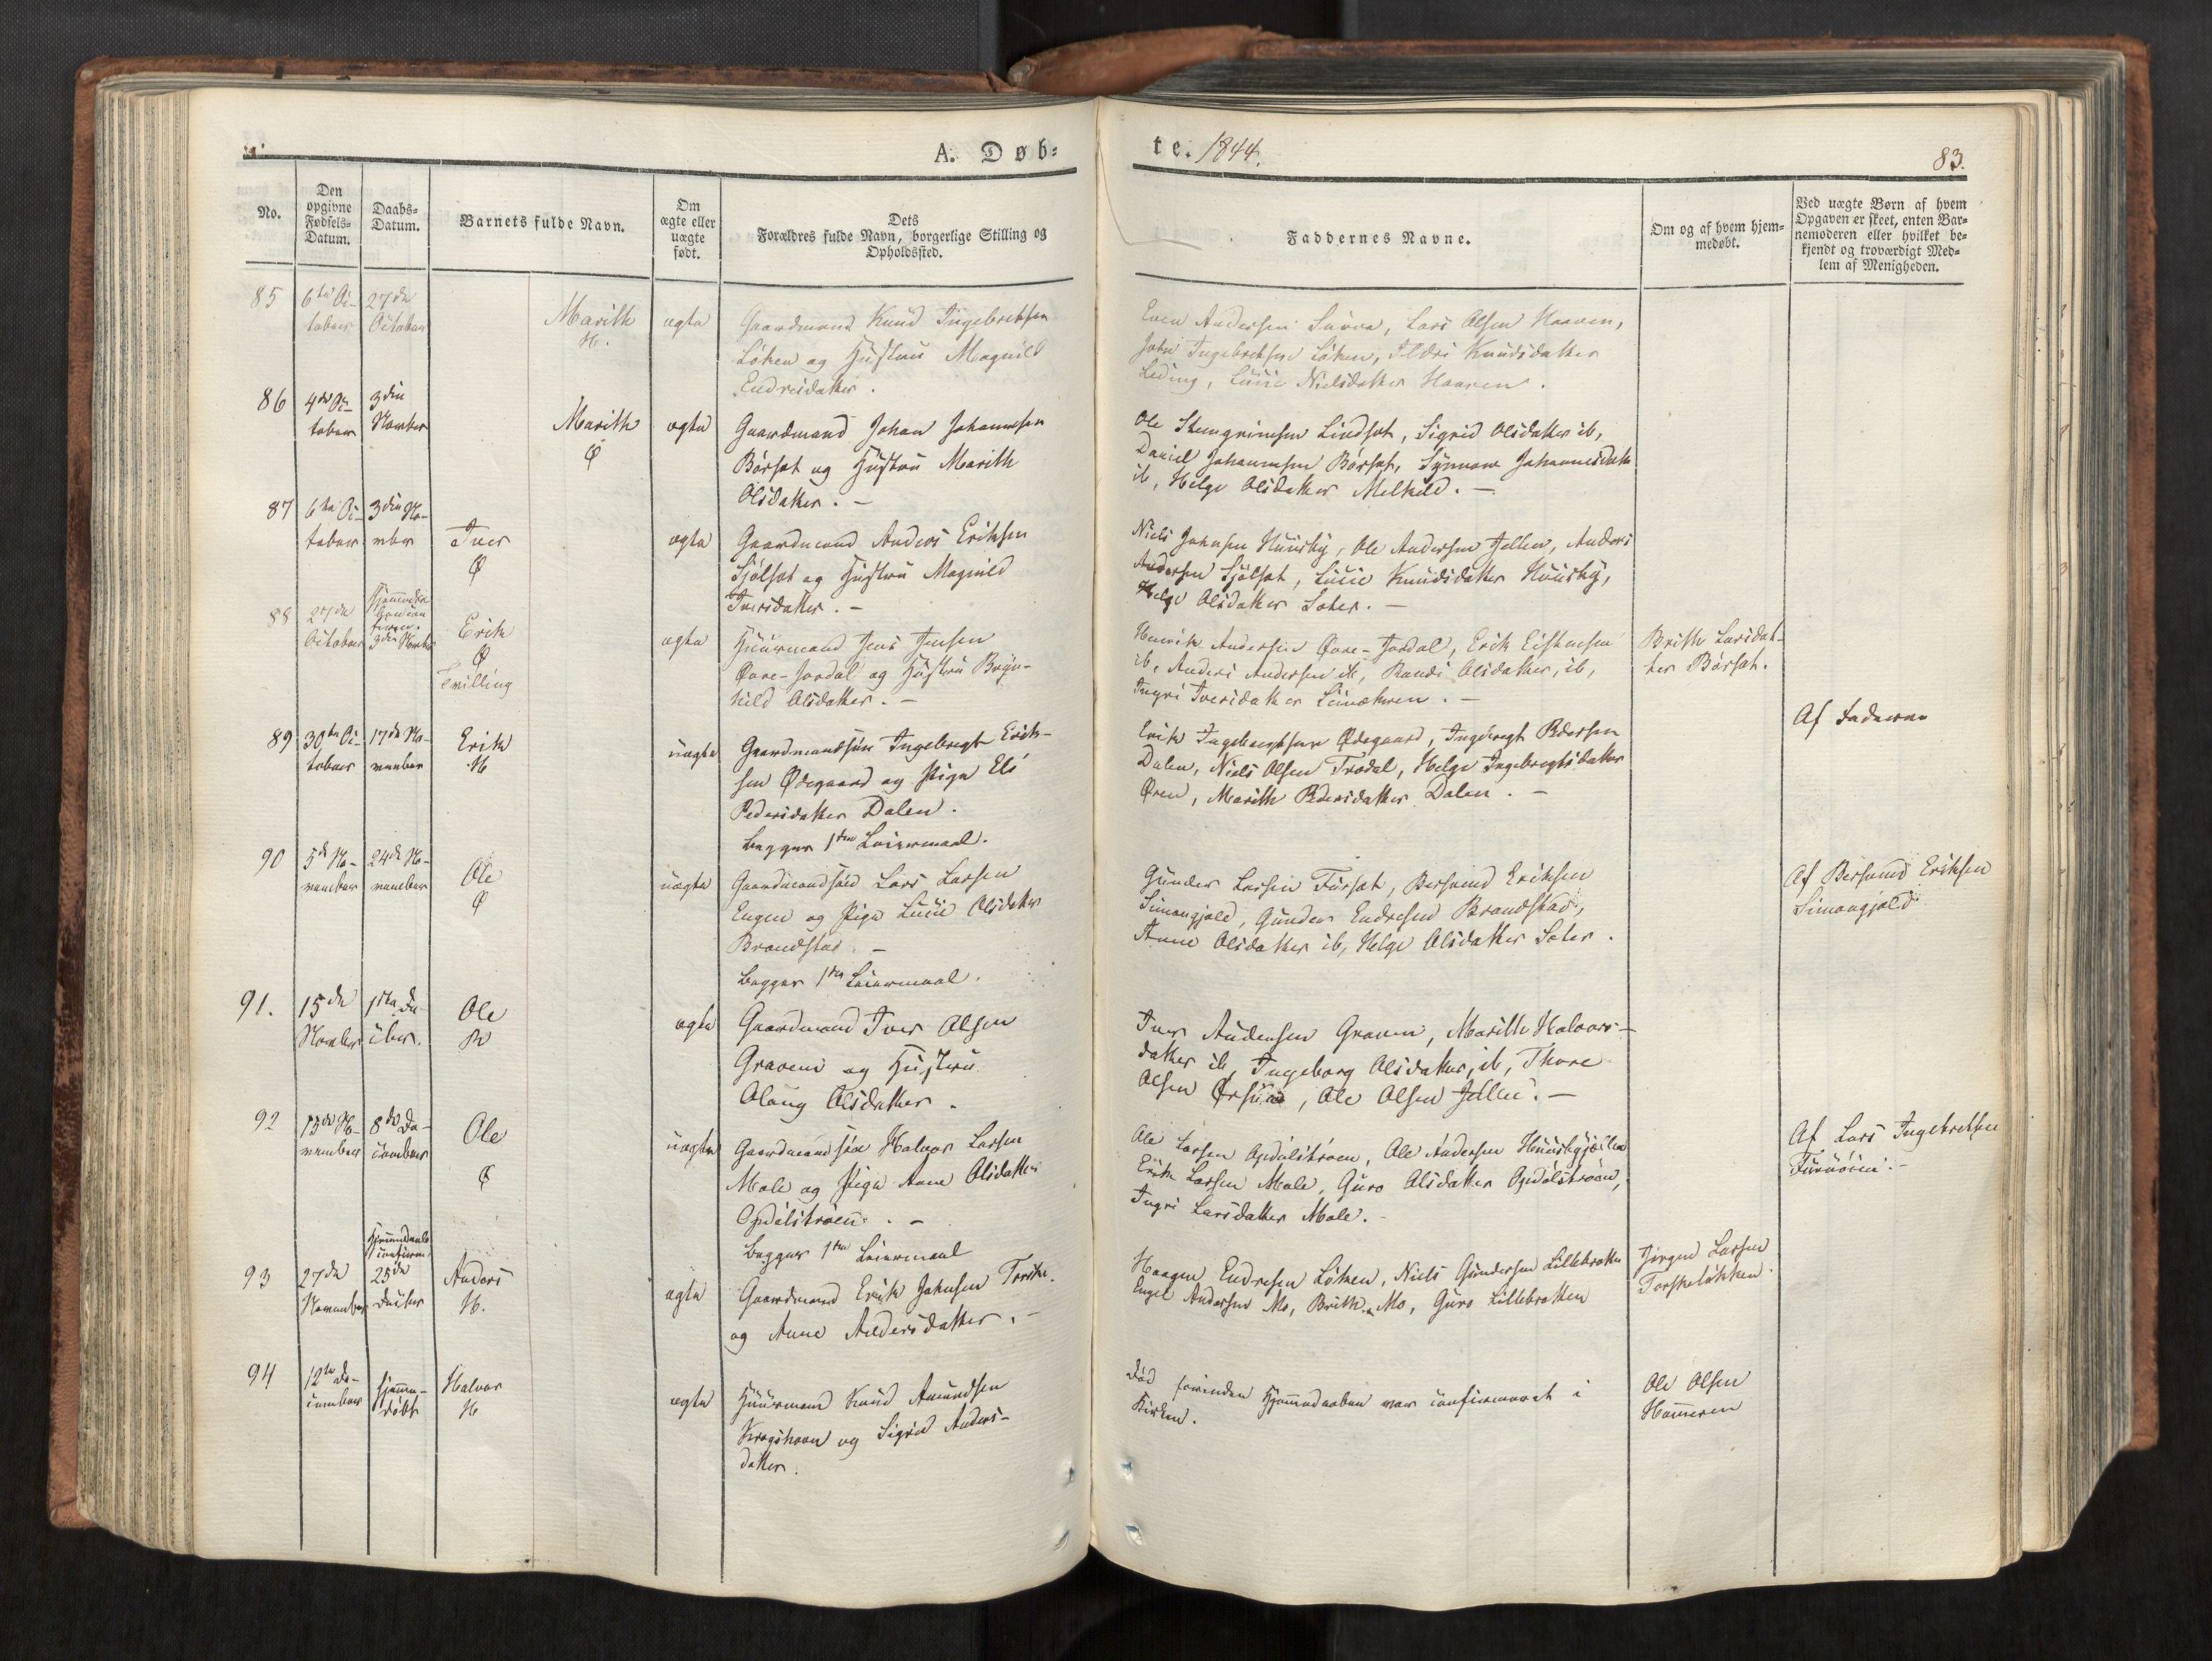 A. Døb=
te. 1844.
83.
No.
Den
opgivne
Fødsels=
Datum.
Daabs=
Datum.
Barnets fulde Navn.
Om
ægte eller
uægte
født.
Dets
Forældres fulde Navn, borgerlige Stilling og
Opholdssted.
Faddernes Navne.
Om og af hvem hjem=
medøbt.
Ved uægte Børn af hvem
Opgaven er skeet, enten Bar=
nemoderen eller hvilket be=
kjendt og troværdigt Med=
lem af Menigheden.
85 6te Oc- 27de Marith ægte Gaardmand Knud Ingebretsen
tober October H.
Løken og Hustrue Magnild
Endresdatter.
Even Andersen Lars Olsen Haaven,
John Ingebretsen Løken, Ildri Knudsdatter
Lucie Nielsdatter Haaven.
86 4de Oc- 3die Marith ægte Gaardmand Johan Johannesen
tober Novbr Ø
Børsæt og Hustru Marith
Olsdatter. -
Ole Steengrimsen Lindset, Sigrid Olsdatter ib,
Daniel Johannesen Børsæt, Synnove Johannesdatter
ib, Helge Olsdatter Melkild. -
87 6te Oc- 3die No- Iver ægte Gaardmand Anders Eriksen
tober vbr Ø
Sjølset og Hustru Magnild
Iversdatter. -
Niels Johnsen Huusby, Ole Andersen Jelle, Anders
Andersen Sjølset, Lucie Knudsdatter Huusby,
Helge Olsdatter Soter. -
88 27de Hjemmedøbt
October 3die Novbr Erik ægte Huusmand Jens Jensen
Ø
Tvilling
Øvre-Jordal og Hustru Bryn-
hild Olsdatter. -
Henrik Andersen Øvre-Jordal, Erik
ib, Anders Andersen ib, Randi Olsdatter, ib,
Ingri Iversdatter
Brith Larsdat-
ter Børsæt.
89 30te Oc- 17de No- Erik uægte Gaardmandssøn Ingebregt Erik-
tober vember H
sen Ødegaard og Pige Eli
Pedersdatter Dalen.
Begges 1ste Leiermaal.
Erik Ingebregtsen Ødegaard, Ingebregt Pedersen
Dalen, Niels Olsen Trødal, Helge Ingebregtsdatter
Øren, Marith Pedersdatter Dalen. -
Af Faderen
90 5te No- 24de No- Ole uægte Gaardmandssøn Lars Larsen
vember vember Ø
Engen og Pige Lucie Olsdatter
Brandstad. -
Begges 1ste Leiermaal.
Gunder Larsen Fursæt, Bersvend Eriksen
Simangjeld, Gunder Endresen Brandstad,
Anne Olsdatter ib, Helge Olsdatter Soter.
Af Bersvend Eriksen
Simangjeld.
91. 15de 1ste De- Ole ægte Gaardmand Iver Olsen
Novbr cbr.
Graven og Hustru
Olaug Olsdatter.
Iver Andersen Graven, Marith Halvors-
datter ib, Ingeborg Olsdatter, ib, Thore
Olsen Ole Olsen Jelle. -
92 13de No- 8de De- Ole uægte Gaardmandssøn Halvor Larsen
vember cember Ø
Male og Pige Anne Olsdatter
Opdølstrøen. -
Begges 1ste Leiermaal
Ole Larsen Opdølstrøen, Ole Andersen
Erik Larsen Male, Guro Olsdatter Opdølstrøen,
Ingri Larsdatter Male.
Af Lars Ingebretsen
93 27de 25de Anders ægte Gaardmand Erik Johnsen
November Decbr H.
og Anne Andersdatter. -
Haagen Endresen Løken, Niels Gundersen Lillebrotten
Engel Andersen Mo, Brith Mo, Guro Lillebrotten
Jørgen Larsen
Torskeløkken.
94 12te De- Hjemme- Halvor ægte Huusmand Knud Amundsen
cember døbt H
Kragshavn og Sigrid Anders-
datter.
Død forinden Hjemmedaaben var confirmeret i
Kirken.
Ole Olsen
Hammeren